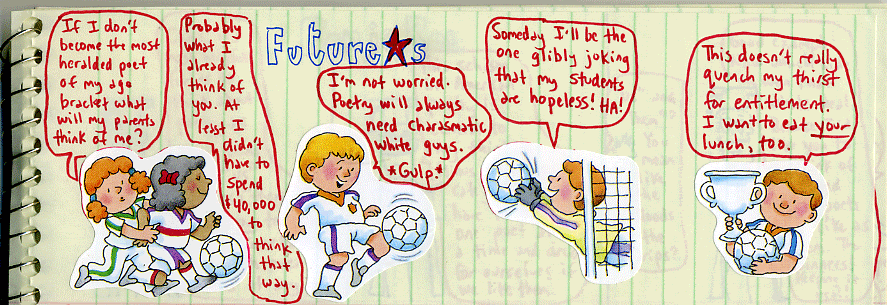 If I don't
become the most
heralded poet
of my age
bracket what
will my parents
think of me?
Probably
what I
already
think of
you. At
least I
didn't
have to
spend
$40,000
to
think
that
way.
Future★s
I'm not worried.
Poetry will always
need charasmatic
white guys.
*Gulp.*
Someday I'll be the
one glibly joking
that my students
are hopeless! HA!
This doesn't really
quench my thirst
for entitlement.
I want to eat your
lunch, too.